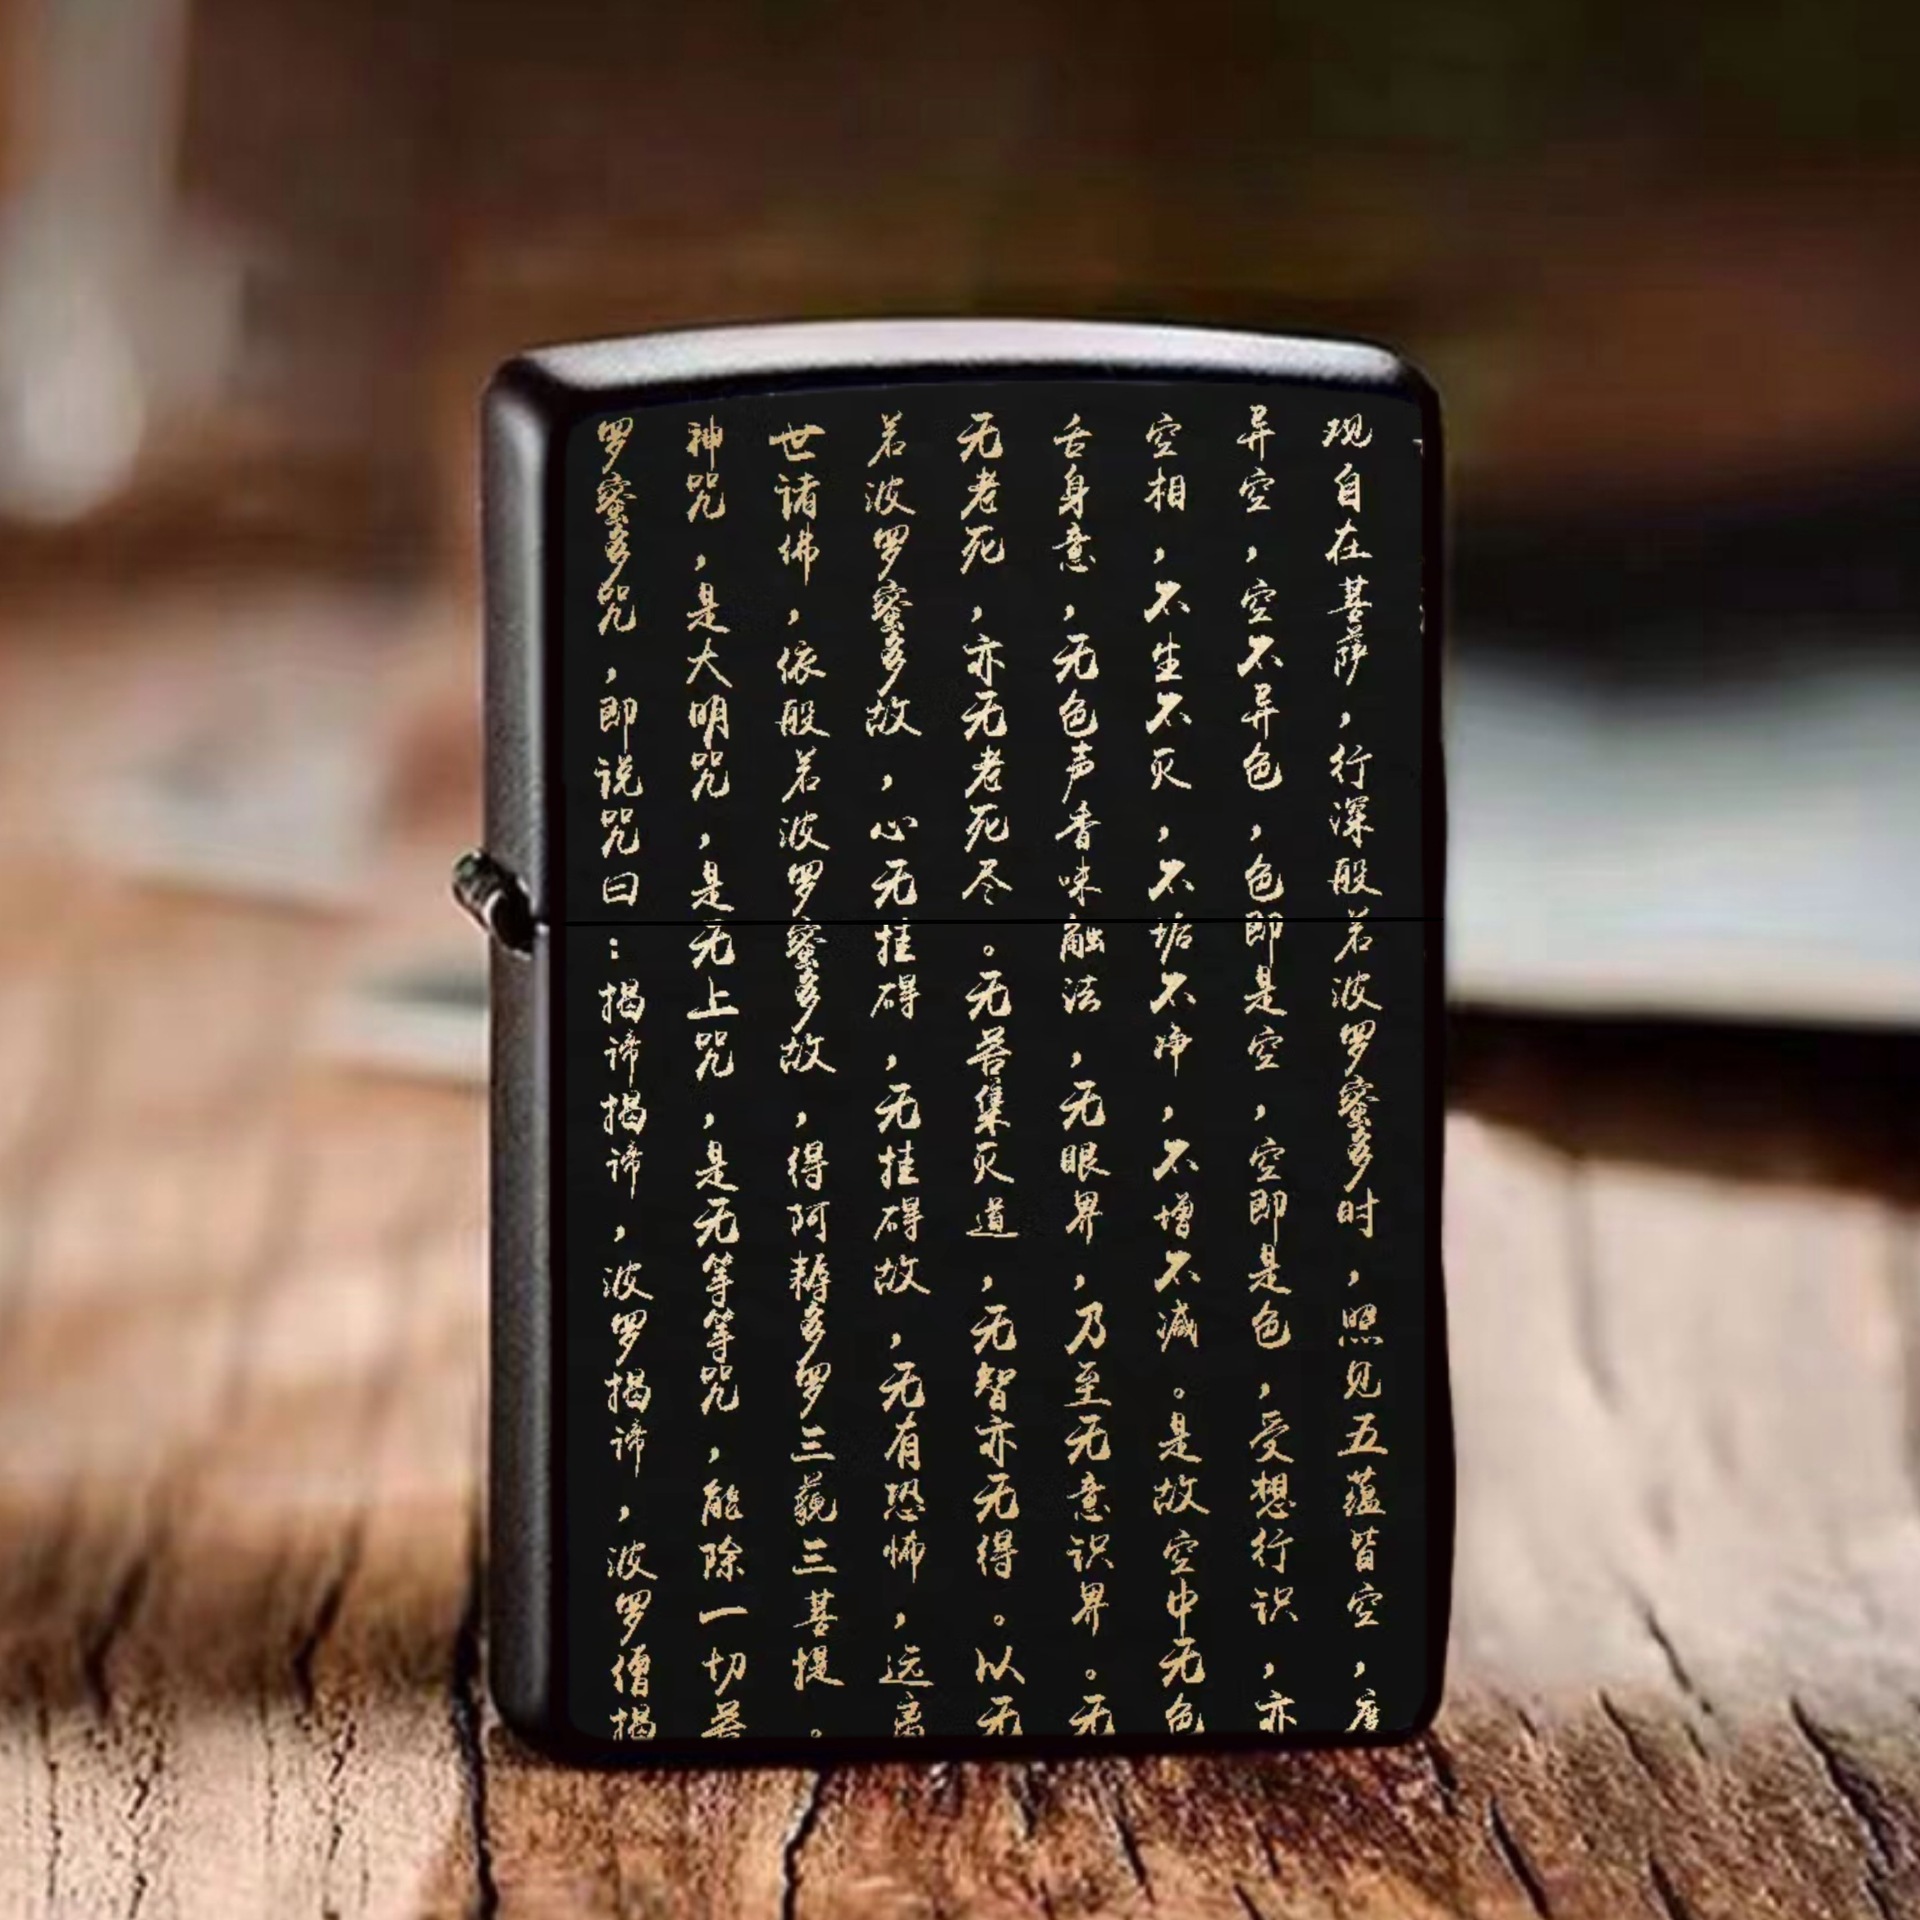 观自在菩萨，行深般若波罗蜜多时，照见五蕴皆空，度
异空，空不异色，色即是空，空即是色，受想行识，亦
空相，不生不灭，不垢不净，不增不减。是故空中无色
舌身意，无色声香味触法，无眼界，乃至无意识界。无
无老死，亦无老死尽。无苦集灭道，无智亦无得。以无
若波罗蜜多故，心无挂碍，无挂碍故，无有恐怖，远离
世诸佛，依般若波罗蜜多故，得阿耨多罗三藐三菩提。
神咒，是大明咒，是无上咒，是无等等咒，能除一切苦
罗蜜多咒，即说咒曰：揭谛揭谛，波罗揭谛，波罗僧揭